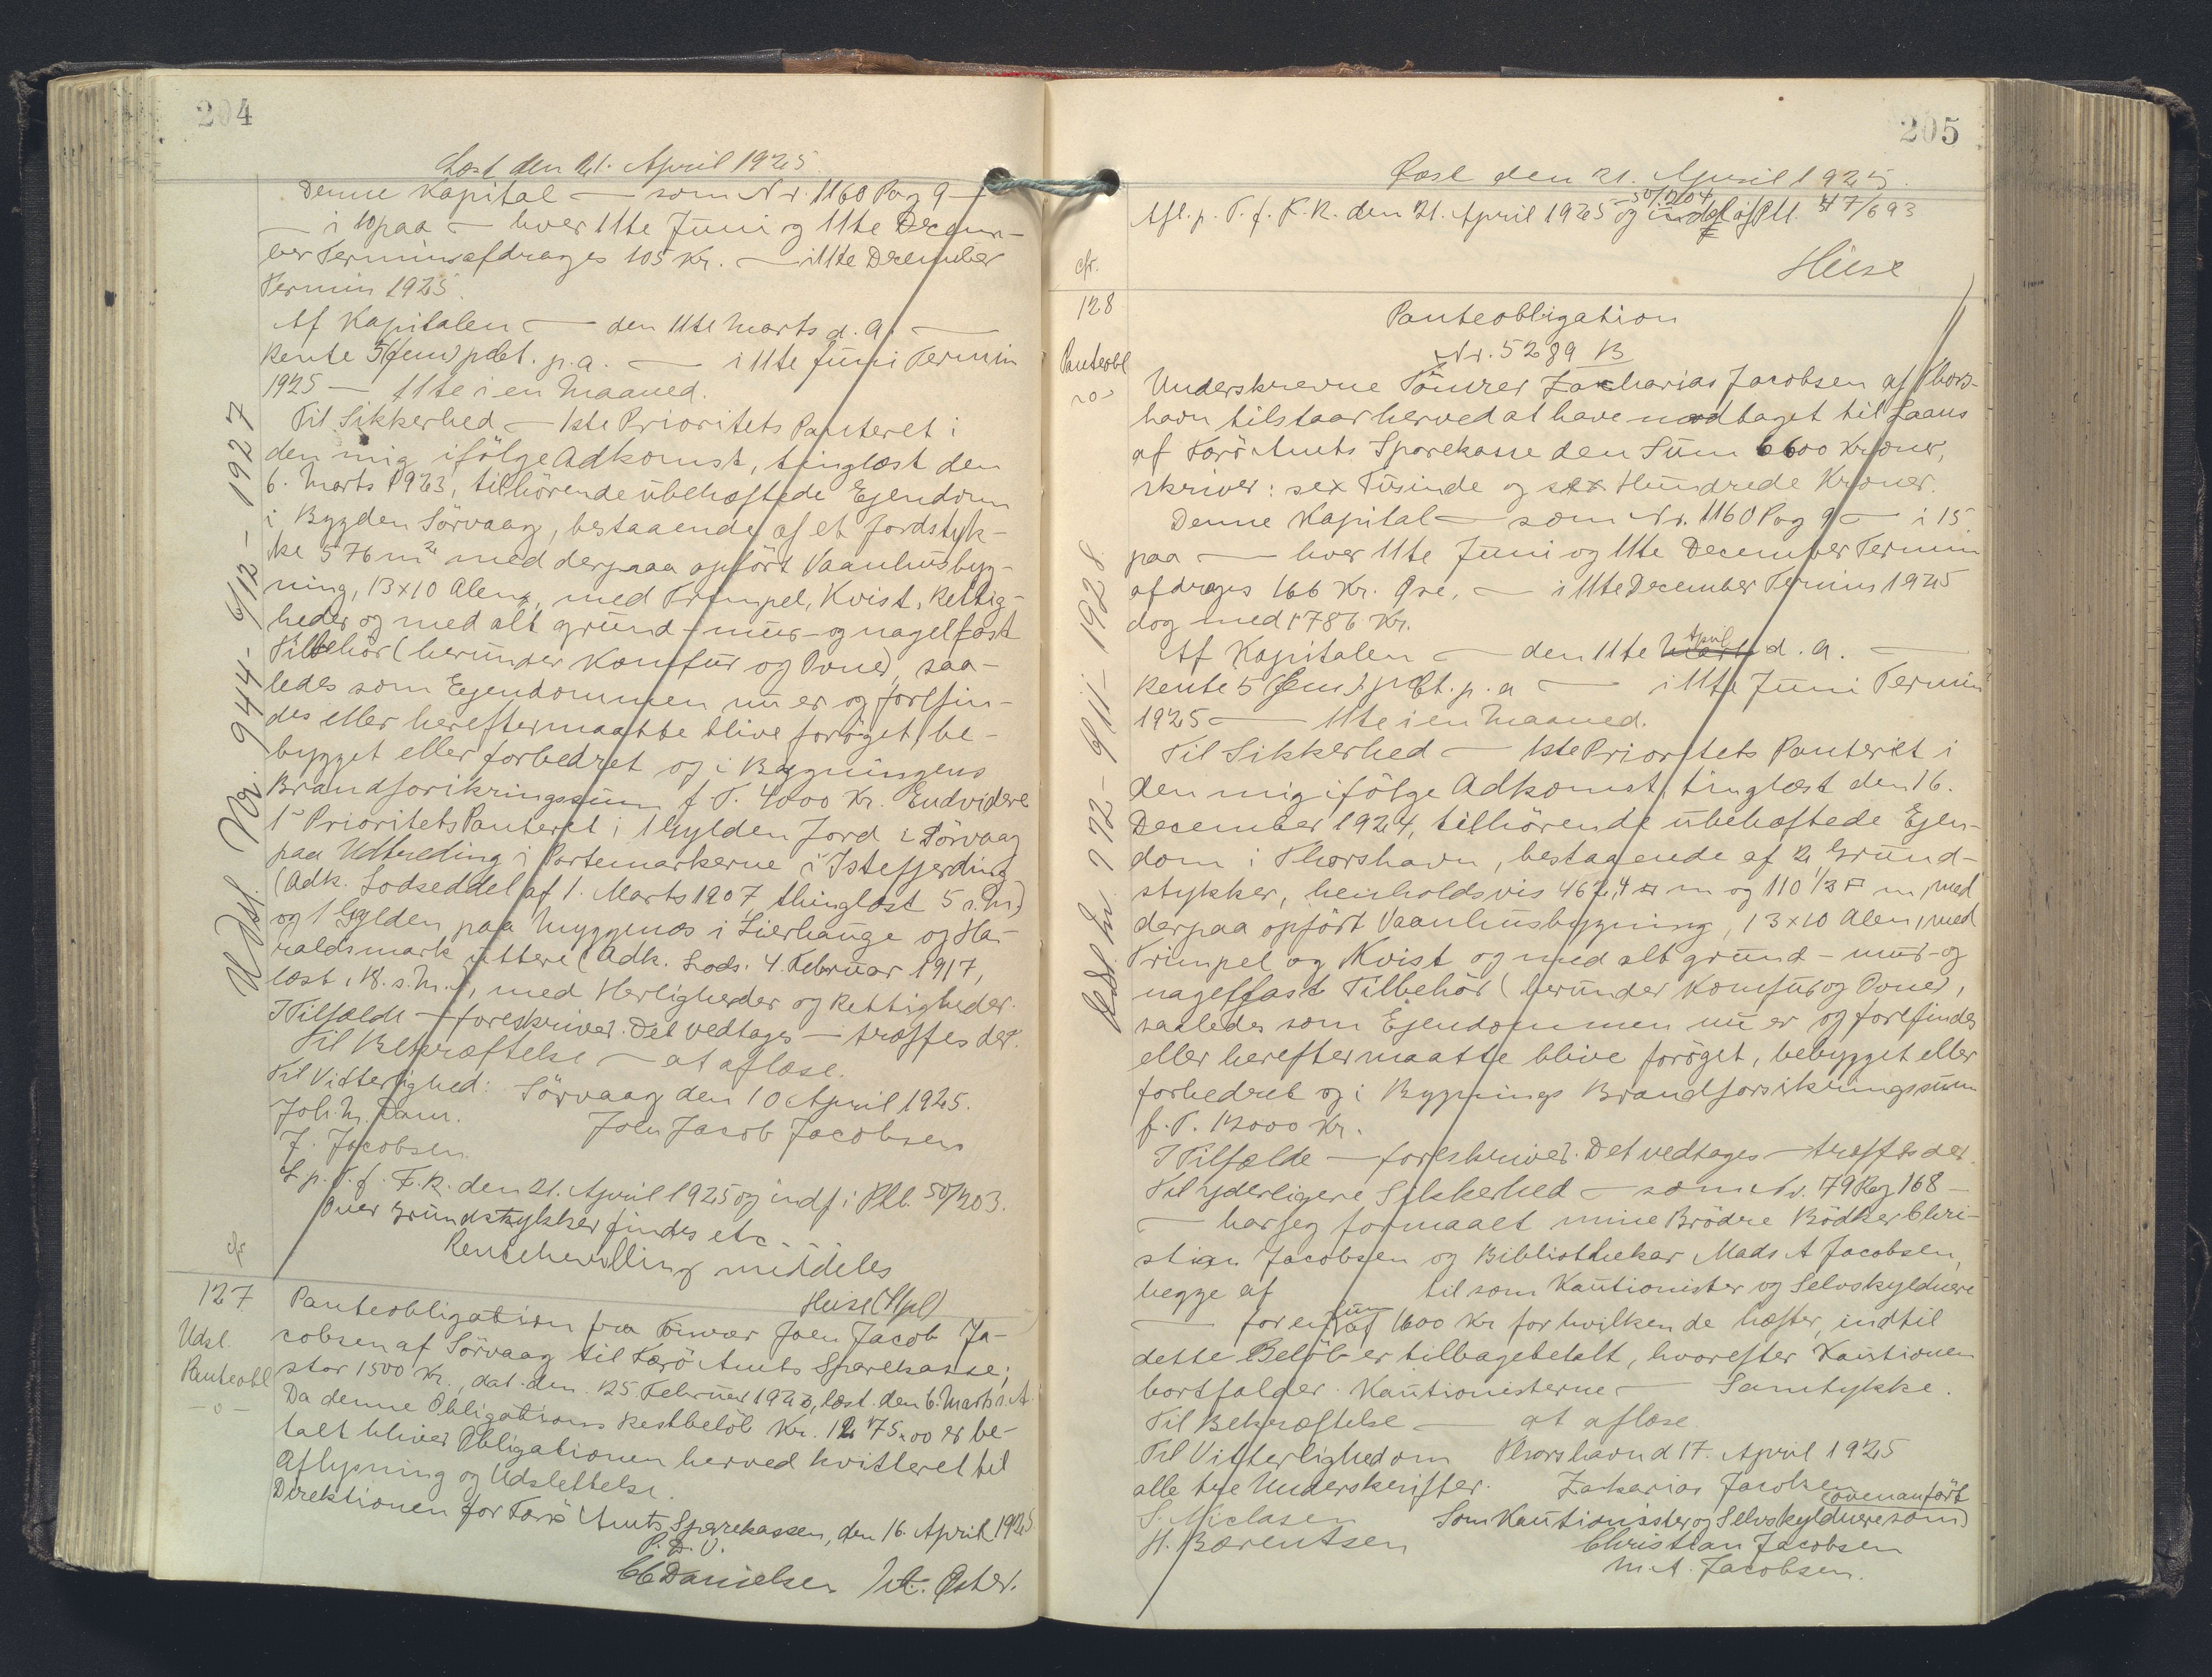 204
Læst den 21. April 1925.
Denne Kapital — som Nr. 1160 Pag 9 —
— i 10 paa — hver 11te Juni og 11te Decem-
ber Termin afdrages 105 Kr. — i 11te December
Termin 1925.
Af Kapitalen — den 11te Marts d. A. —
Rente 5 (fem) pCt. p. a. — i 11te Juni Termin
1925 — 11te i en Maaned.
Til Sikkerhed — 1ste Prioritets Panteret i
den mig ifölge Adkomst, tinglæst den
6. Marts 1923, tilhörende ubehæftede Ejendom
i Bygden Sörvaag, bestaaende af et Jordstyk-
ke 576 m² med derpaa opfört Vaanhusbyg-
ning, 13 x 10 Alen, med Trimpel, Kvist, Rettig-
heder og med alt grund- mur- og nagelfast
Tilbehör (herunder Komfur og Ovne), saa-
ledes som Ejendommen nu er og forefin-
des eller hereftermaatte blive foröget, be-
bygget eller forbedret og i Bygningens
Brandforsikringssum f. T. 4000 Kr. Endvidere
1' Prioritets Panteret i 1 Gylden Jord i Sörvaag
paa Udtreding i Partemarkerne i Istefjerding
(Adk. Lodseddel af 1. Marts 1907, thinglæst 5 s. M.)
og 1 Gylden paa Myggenæs i Lierhauge og Ha-
raldsmark uttere (Adk. Lods. 4. Februar 1917,
læst 18. s. M.), med Herligheder og Rettigheder.
I Tilfælde — foreskriver. Det vedtages — træffes der.
Til Bekræftelse — at aflæse.
Til Vitterlighed: Sörvaag den 10 April 1925.
Joh. M. Dam. Joen Jacob Jacobsen
J. Jacobsen.
L. p. T. f. F. R. den 21. April 1925 og indf. i Ptb. 50/203.
Over Grundstykker findes etc.
Rentebevilling meddeles
Heise (Upl)
Udsl. Nr. 944 - 6/12 - 1927
cfr
127
Udsl.
Panteobl
—o—
Panteobligation fra Tömrer Joen Jacob Ja-
cobsen af Sörvaag til Færö Amts Sparekasse,
stor 1500 Kr., dat. den 25 Februar 1923, læst den 6. Marts s. A.
Da denne Obligations Restbelöb Kr. 1275.00 er be-
talt bliver Obligationen herved kvitteret til
Aflysning og Udslettelse.
Direktionen for Færö Amts Sparekassen, den 16. April 1925
P. D. V.
CC Danielsen M. Öster.
205
Læst den 21. April 1925.
Afl. p. T. f. F. R. den 21. April 1925 og 50/204 47/693
Heise
cfr.
128
Panteobl
-o-
Panteobligation
Nr. 5289 B
Underskrevne Tömrer Zacharias Jacobsen af Thors-
havn tilstaar herved at have modtaget til Laans
af Færö Amts Sparekasse den Sum 6600 Kroner,
skriver: sex Tusinde og sex Hundrede Kroner.
Denne Kapital — som Nr. 1160 Pag 9 — i 15
paa — hver 11te Juni og 11te December Termin
afdrages 166 Kr. Öre, — i 11te December Termin 1925
dog med 1786 Kr.
Af Kapitalen — den 11te April d. A. —
Rente 5 (fem) pCt. p. a — i 11te Juni Termin
1925 — 11te i en Maaned.
Til Sikkerhed — 1ste Prioritets Panteret i
den mig ifölge Adkomst, tinglæst den 16.
December 1924, tilhörende ubehæftede Ejen-
dom i Thorshavn, bestaaende af 2 Grund-
stykker, henholdsvis 462,4 □ m og 110 1/3 □ m, med
derpaa opfört Vaanhusbygning, 13 x 10 Alen, med
Trimpel og Kvist og med alt grund- mur- og
nagelfast Tilbehör (herunder Komfur og Ovne),
saaledes som Ejendommen nu er og forefindes
eller hereftermaatte blive foröget, bebygget eller
forbedret og i Bygnings Brandforsikringssum
f. T. 12000 Kr.
I Tilfælde — foreskriver. Det vedtages — træffes der.
Til yderligere Sikkerhed — som Nr. 79 Pag 168 —
— har jeg formaaet mine Brödre Bödker Chri-
stian Jacobsen og Bibliothekar Mads A Jacobsen,
begge af til som Kautionister og Selvskyldnere
— for en Sum af 1600 Kr for hvilken de hæfter, indtil
dette Belöb er tilbagebetalt, hvorefter Kautionen
bortfalder. Kautionisterne — Samtykke.
Til Bekræftelse — at aflæse.
Til Vitterlighed om Thorshavn d 17. April 1925
alle tre Underskrifter. Zakarias Jacobsen
S. Niclasen Som Kautionister og Selvskyldnere som ovenanfört
H. Bærentsen Christian Jacobsen
M. A. Jacobsen.